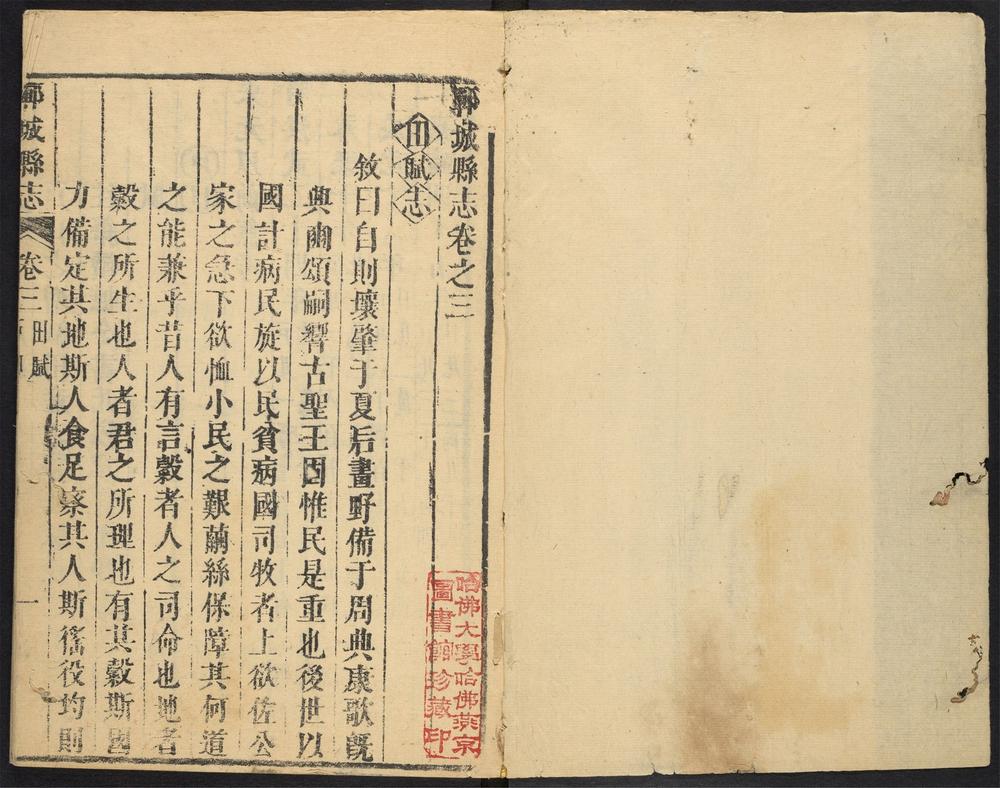 聊城縣志卷之三
田賦志
敘曰自則壤肇于夏后畫野備于周典康歌旣
興豳頌嗣響古聖王固惟民是重也後世以
國計病民旋以民貧病國司牧者上欲佐公
家之急下欲恤小民之艱繭絲保障其何道
之能兼乎昔人有言穀者人之司命也地者
穀之所生也人者君之所理也有其穀斯國
力備定其地斯人食足察其人斯徭役均則
聊城縣志
卷三
田賦
一
哈佛大學哈佛燕京
圖書館珍藏印